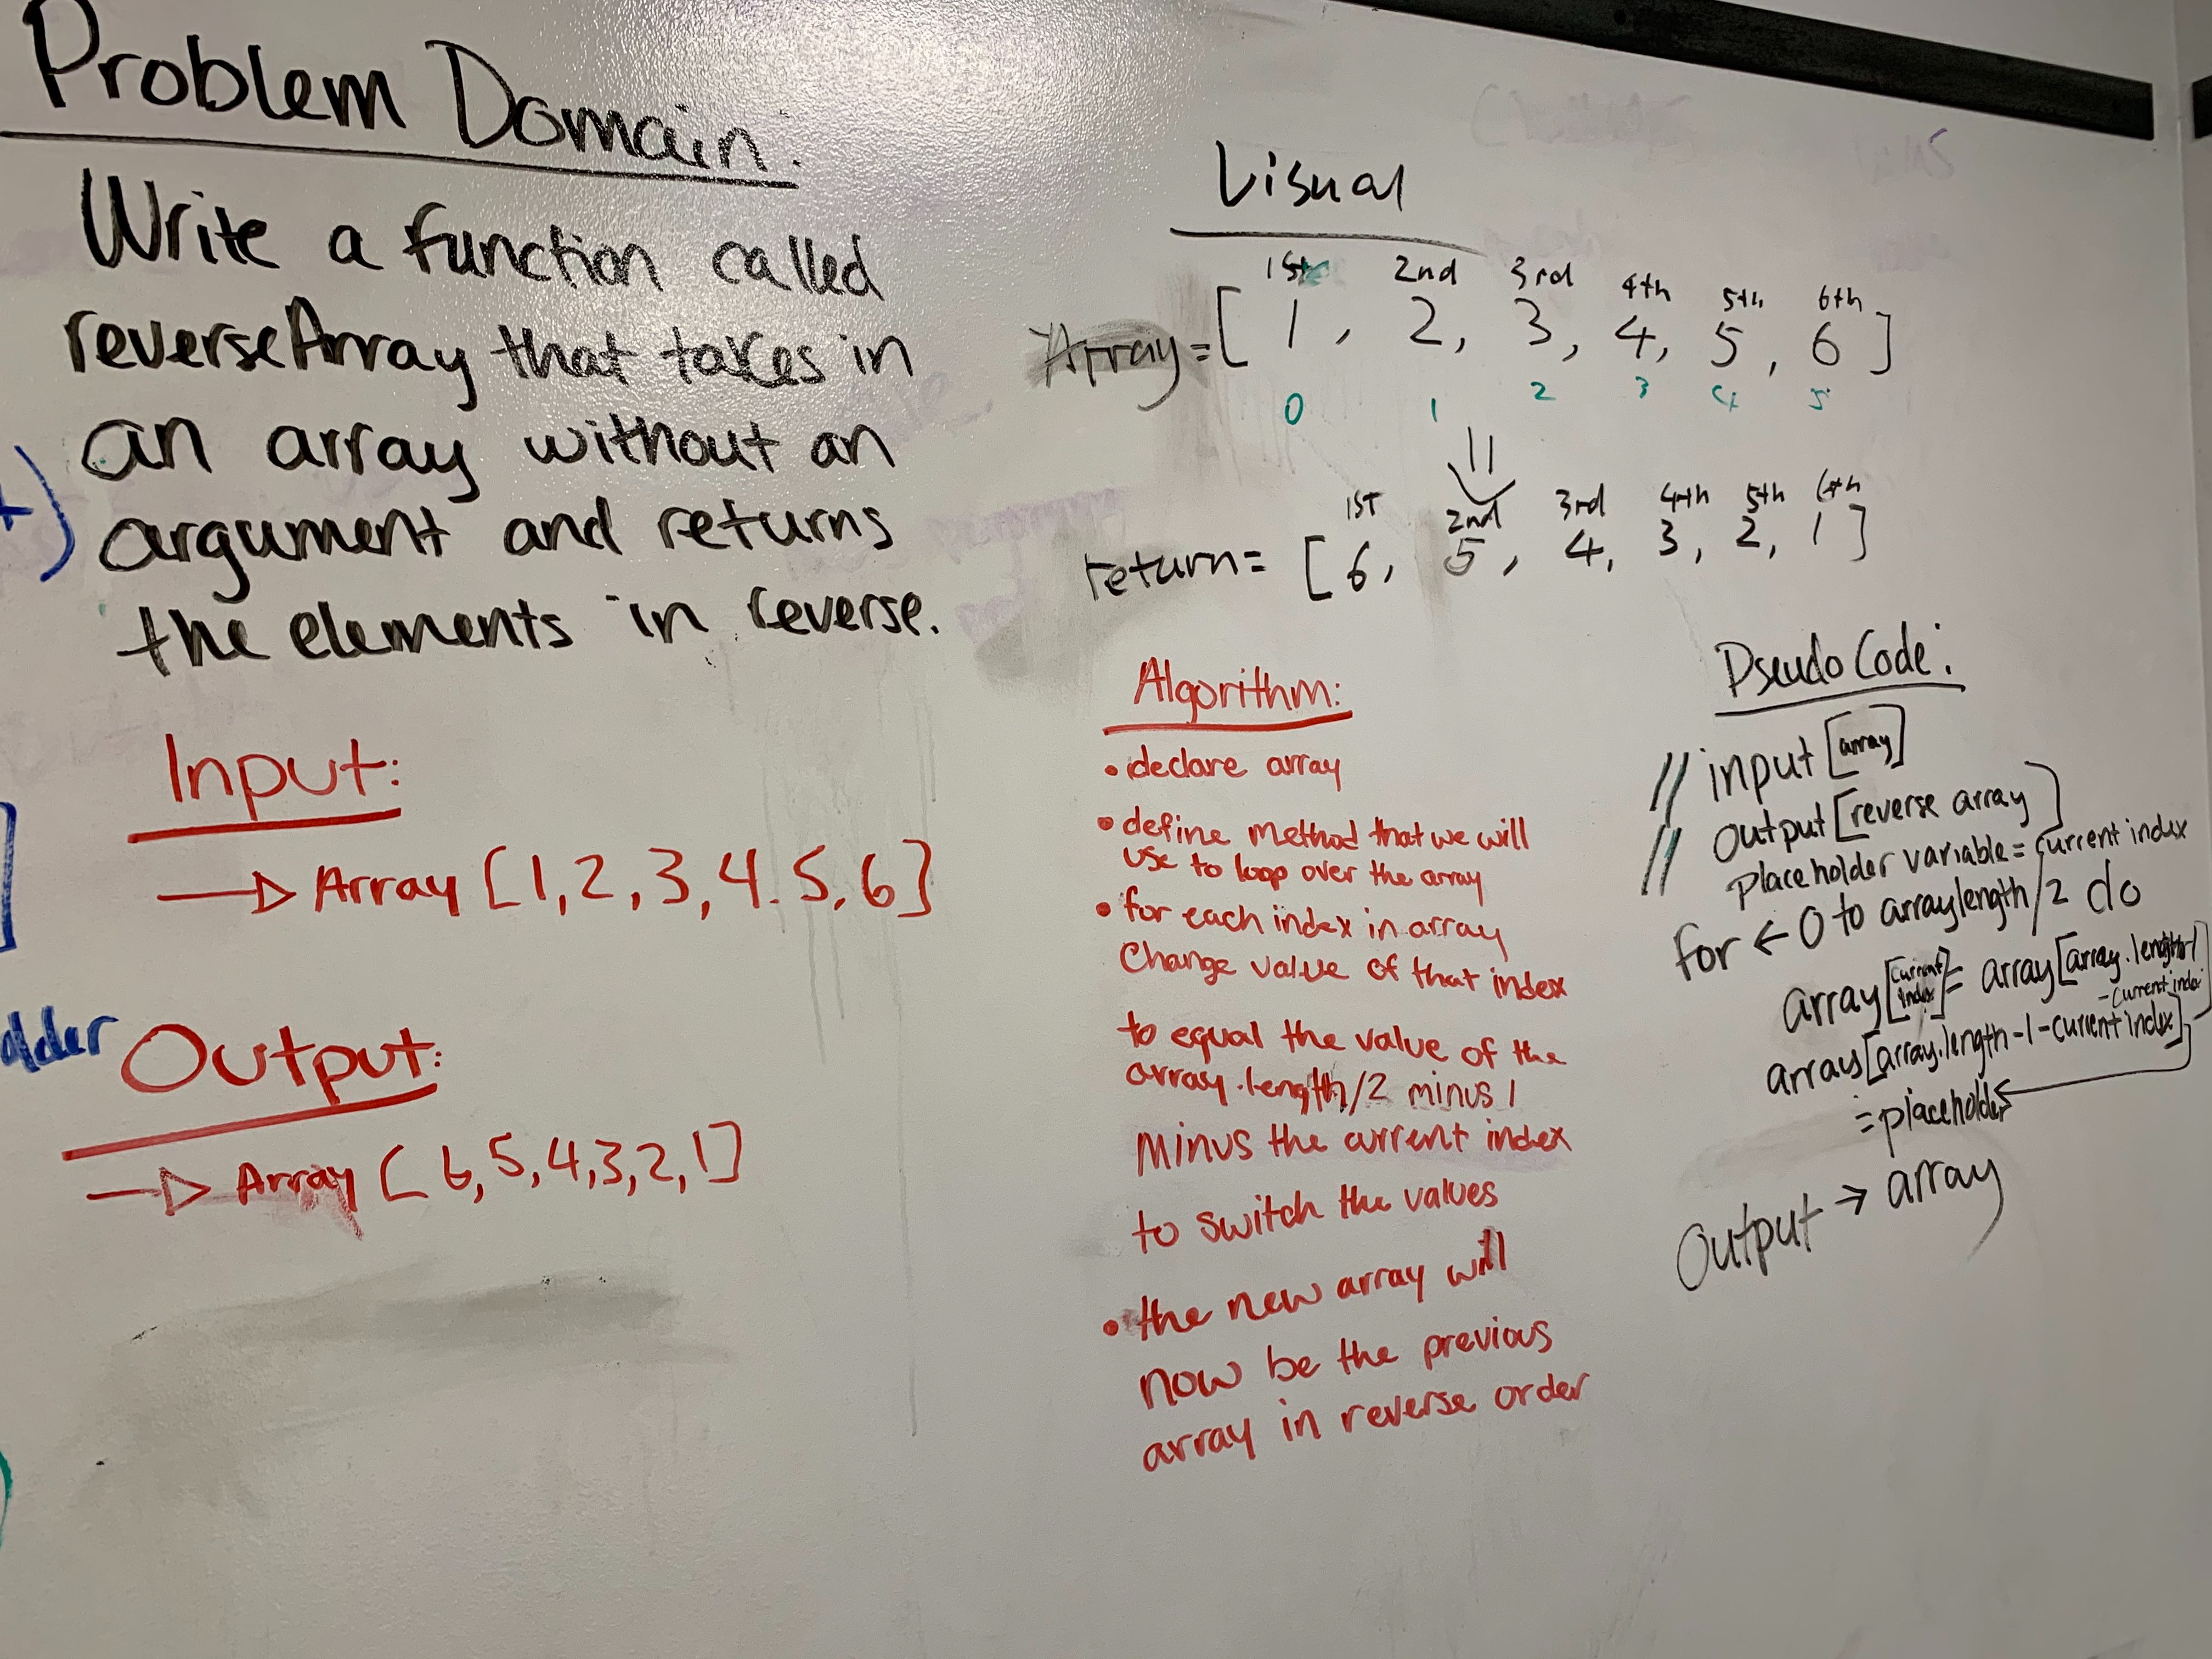 Problem Domain:
Write a function called
reverseArray that takes in
an array without an
argument and returns
the elements in reverse.
Input:
→ Array [1,2,3,4.5,6]
Output:
→ Array [6,5,4,3,2,1]
older
Visual
1st 2nd 3rd 4th 5th 6th
Array = [ 1, 2, 3, 4, 5, 6 ]
0 1 2 3 4 5
1st 2nd 3rd 4th 5th 6th
return = [ 6, 5, 4, 3, 2, 1 ]
Algorithm:
• declare array
• define method that we will
use to loop over the array
• for each index in array
Change value of that index
to equal the value of the
array.length/2 minus 1
minus the current index
to switch the values
• the new array will
now be the previous
array in reverse order
Pseudo Code:
// input [array]
// output [reverse array]
placeholder variable = current index
for ← 0 to arraylength/2 do
array[current index] = array[array.length-1
-current index]
arrays[array.length-1-current index]
= placeholder
Output → array